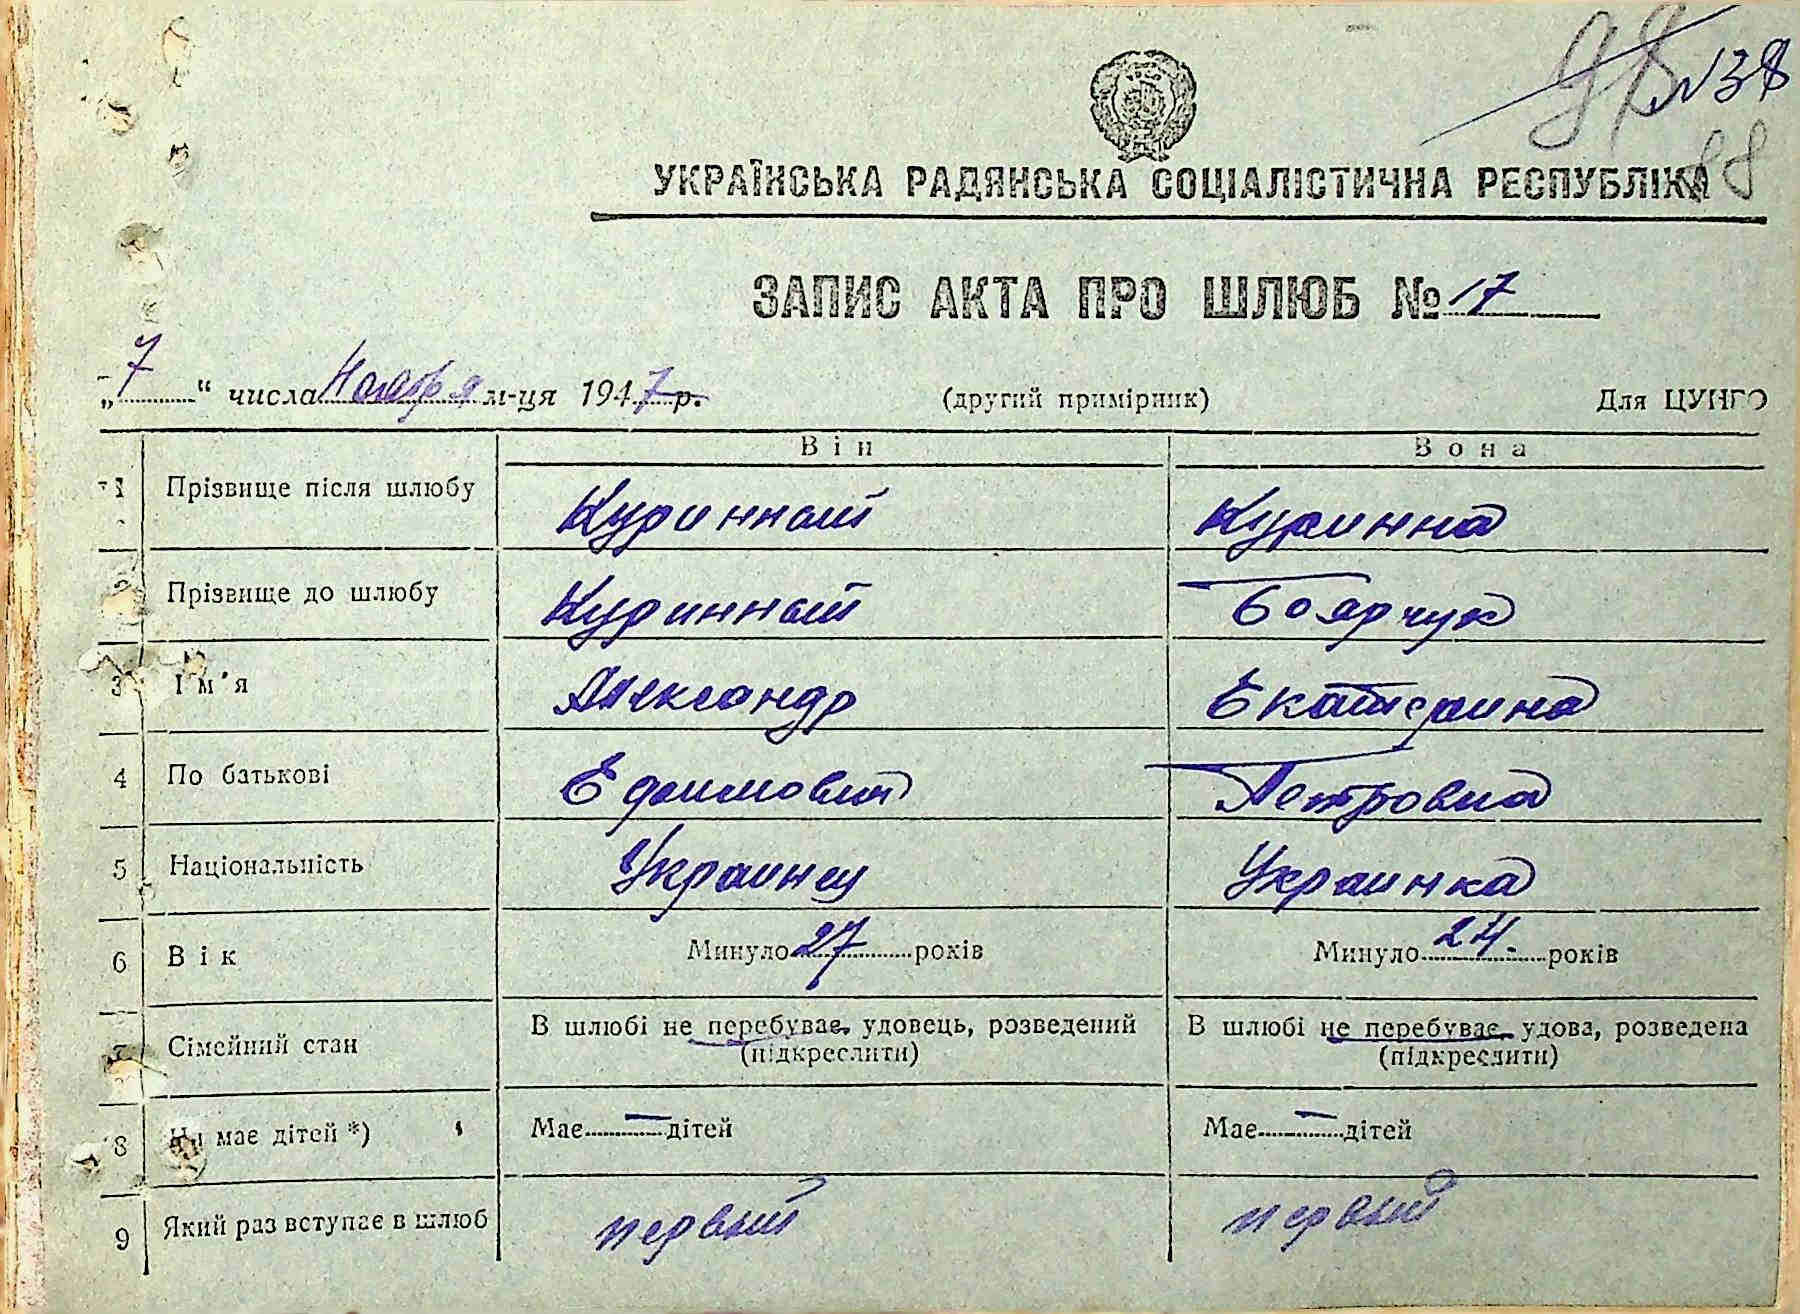 98 N38
88
УКРАЇНСЬКА РАДЯНСЬКА СОЦІАЛІСТИЧНА РЕСПУБЛІКА
ЗАПИС АКТА ПРО ШЛЮБ № 17
„7“ числа Ноября м-ця 1947 р. (другий примірник) Для ЦУНГО
Він Вона
1 Прізвище після шлюбу Куринный Куринна
2 Прізвище до шлюбу Куринный Боярчук
3 Ім'я Александр Екатерина
4 По батькові Ефимович Петровна
5 Національність Украинец Украинка
6 Вік Минуло 27 років Минуло 24. років
7 Сімейний стан В шлюбі не перебуває, удовець, розведений В шлюбі не перебуває, удова, розведена
(підкреслити) (підкреслити)
8 Чи має дітей *) Має — дітей Має — дітей
9 Який раз вступає в шлюб первый первый